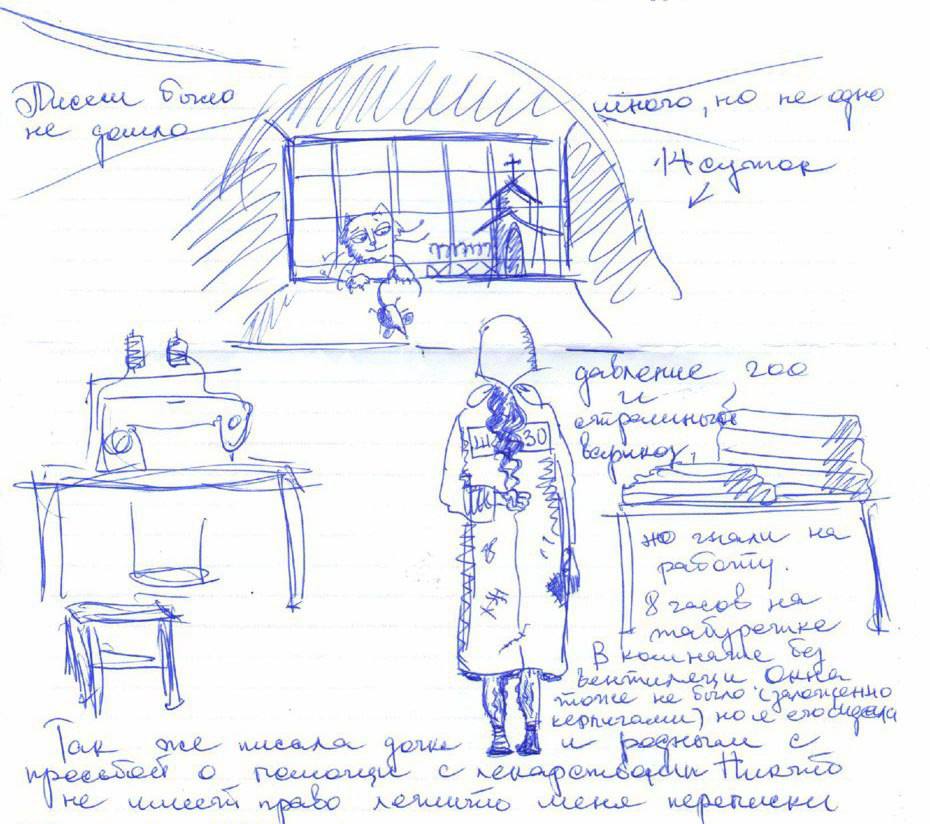 Писем было много, но не одно
не дошло
14 суток
давление 200
и
страшный
варикоз,
ШИЗО
но гнали на
работу.
8 часов на
табуретке
В комнате без
вентиляци Окна
тоже не было (заложенно
керпичами) но я его видела
Так же писала дочке и родным с
просьбой о помощи с лекарствами Никто
не имеет право лешить меня переписки